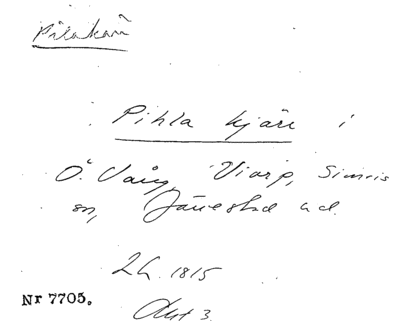 Pilakärr
Pihla kjärr i
Ö. Vång, Viarp, Simris
sn, Järrestad hd.
Lh. 1815
Nr 7705.
Akt 3